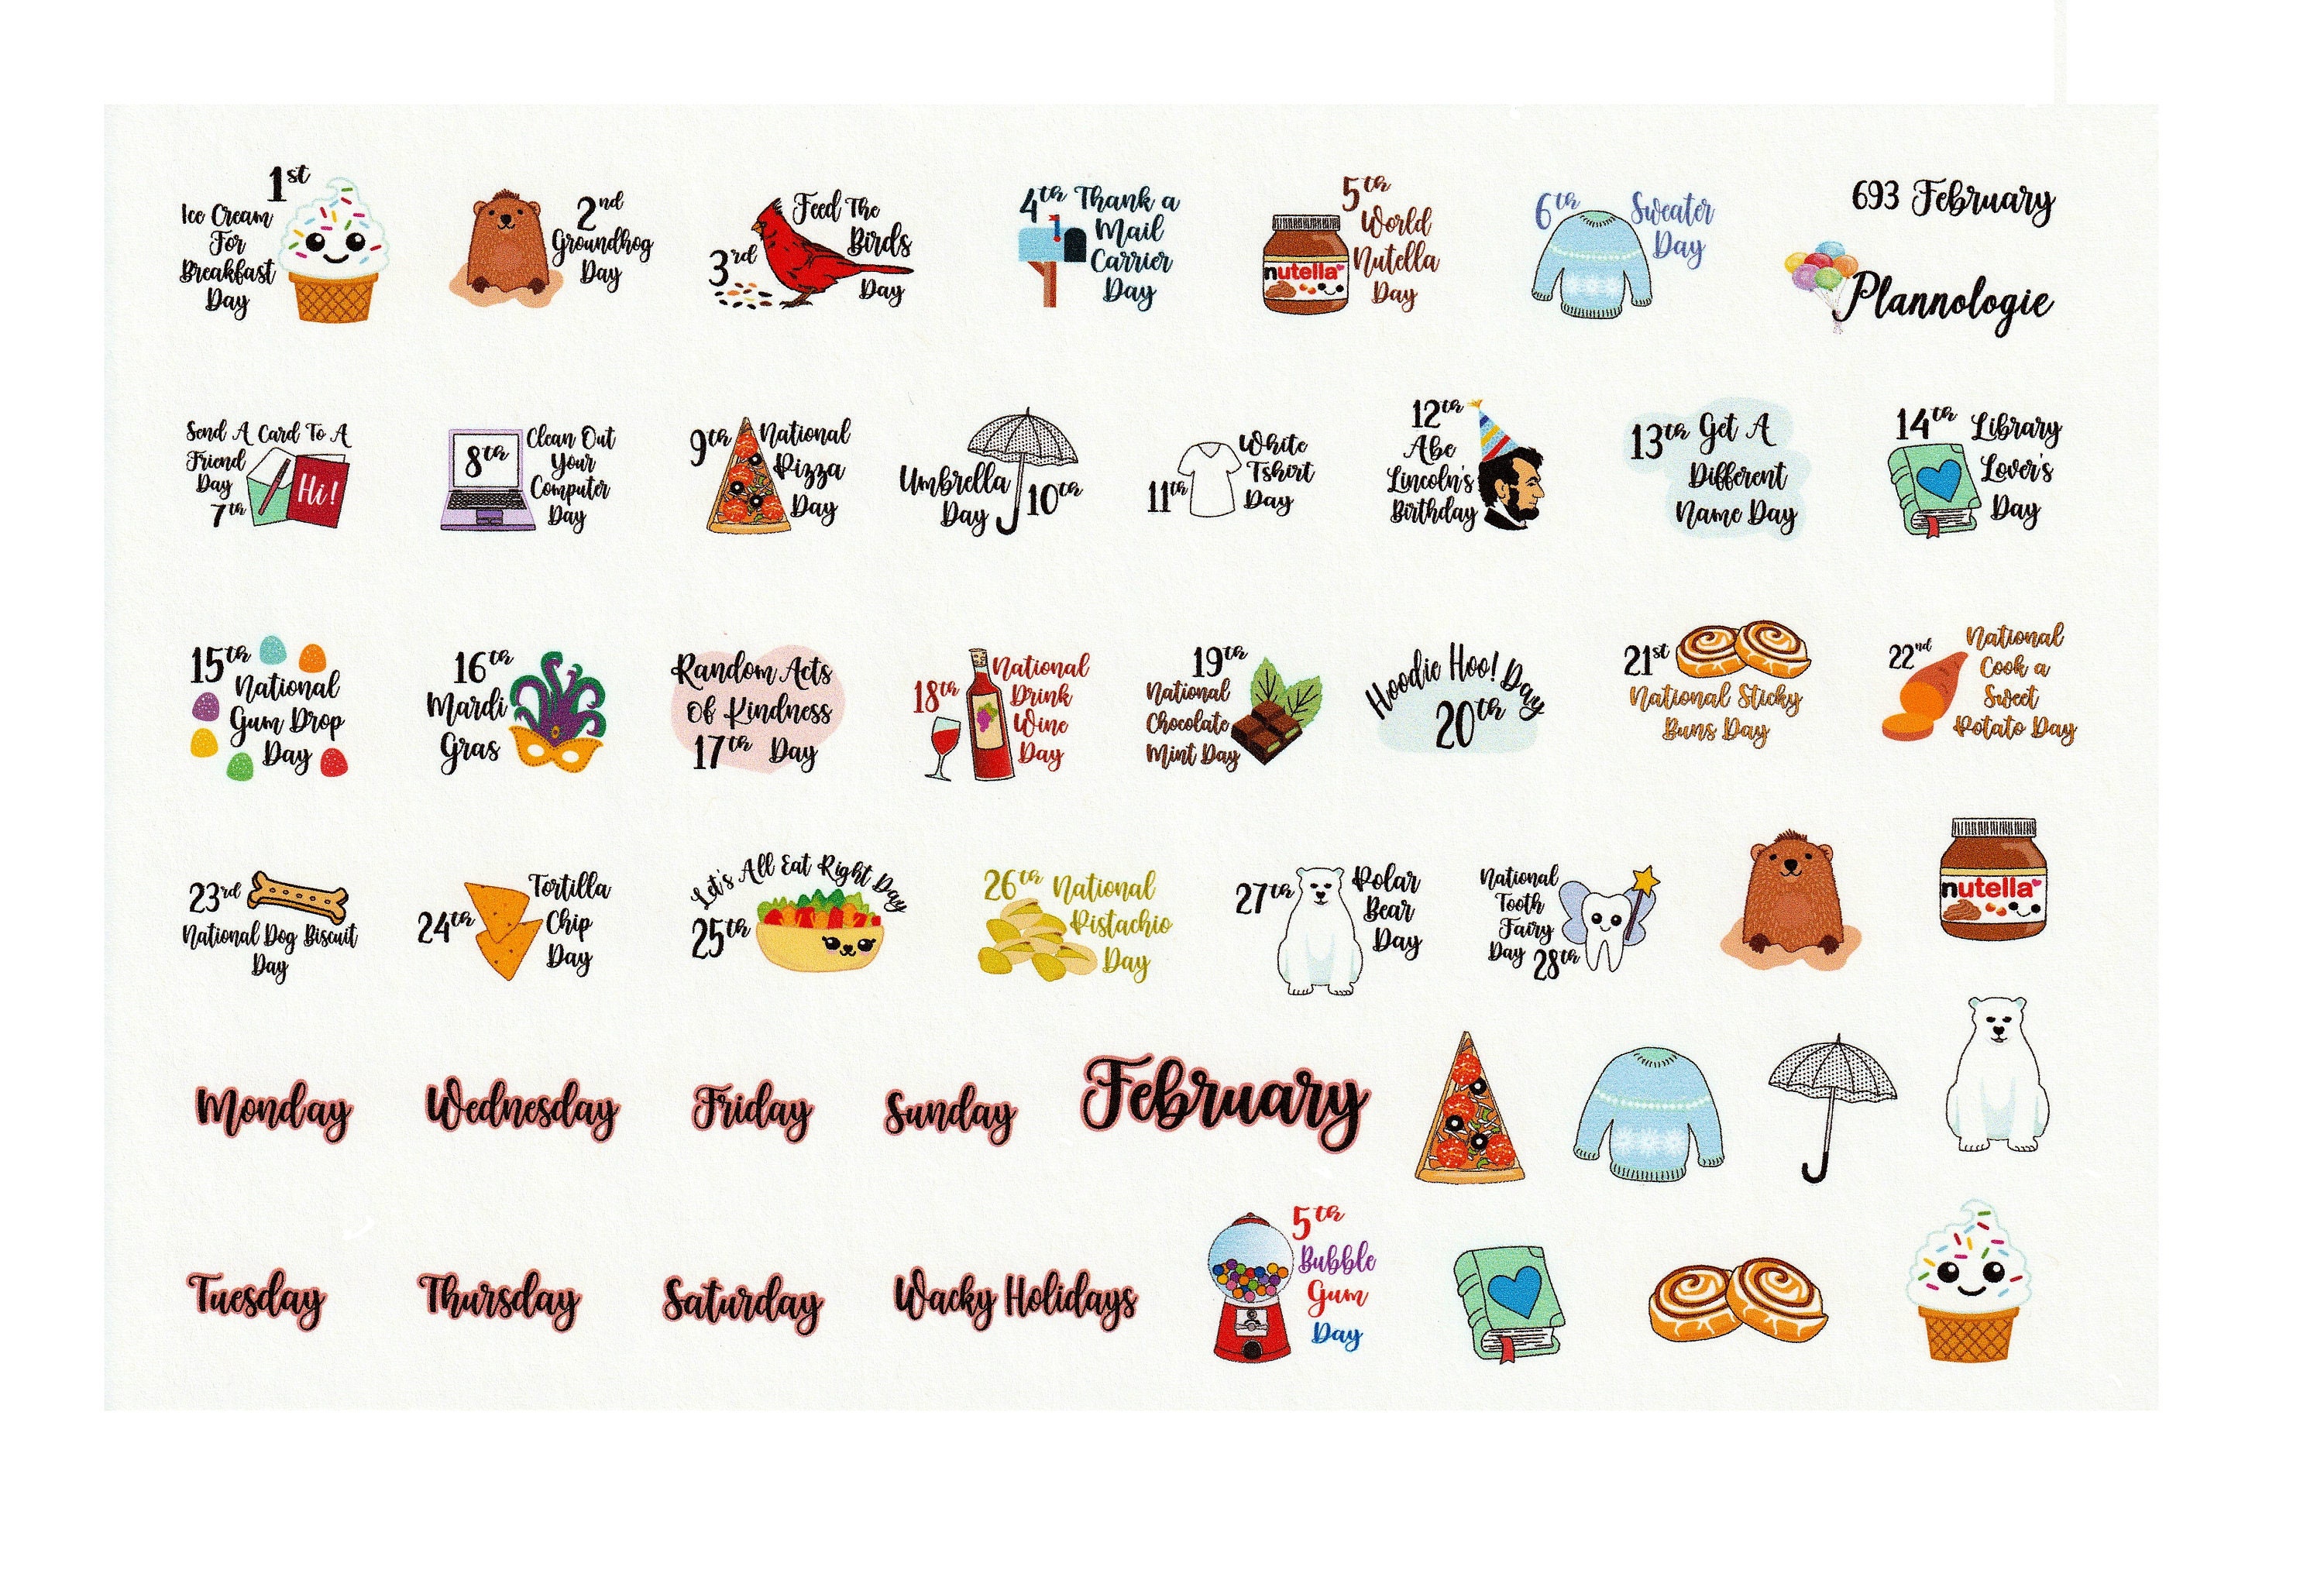 1st
Ice Cream
For
Breakfast
Day
2nd
Groundhog
Day
Feed The
Birds
3rd
Day
4th Thank a
Mail
Carrier
Day
5th
World
Nutella
Day
nutella
6th Sweater
Day
693 February
Plannologie
Send A Card To A
Friend
Day
7th
Hi!
8th
Clean Out
Your
Computer
Day
9th National
Pizza
Day
Umbrella
Day 10th
White
Tshirt
11th Day
12th
Abe
Lincoln's
Birthday
13th Get A
Different
Name Day
14th Library
Lover's
Day
15th
National
Gum Drop
Day
16th
Mardi
Gras
Random Acts
Of Kindness
17th Day
18th National
Drink
Wine
Day
19th
National
Chocolate
Mint Day
Hoodie Hoo! Day
20th
21st
National Sticky
Buns Day
22nd National
Cook a
Sweet
Potato Day
23rd
National Dog Biscuit
Day
24th Tortilla
Chip
Day
Let's All Eat Right Day
25th
26th National
Pistachio
Day
27th Polar
Bear
Day
National
Tooth
Fairy
Day 28th
nutella
Monday
Wednesday
Friday
Sunday
February
Tuesday
Thursday
Saturday
Wacky Holidays
5th
Bubble
Gum
Day